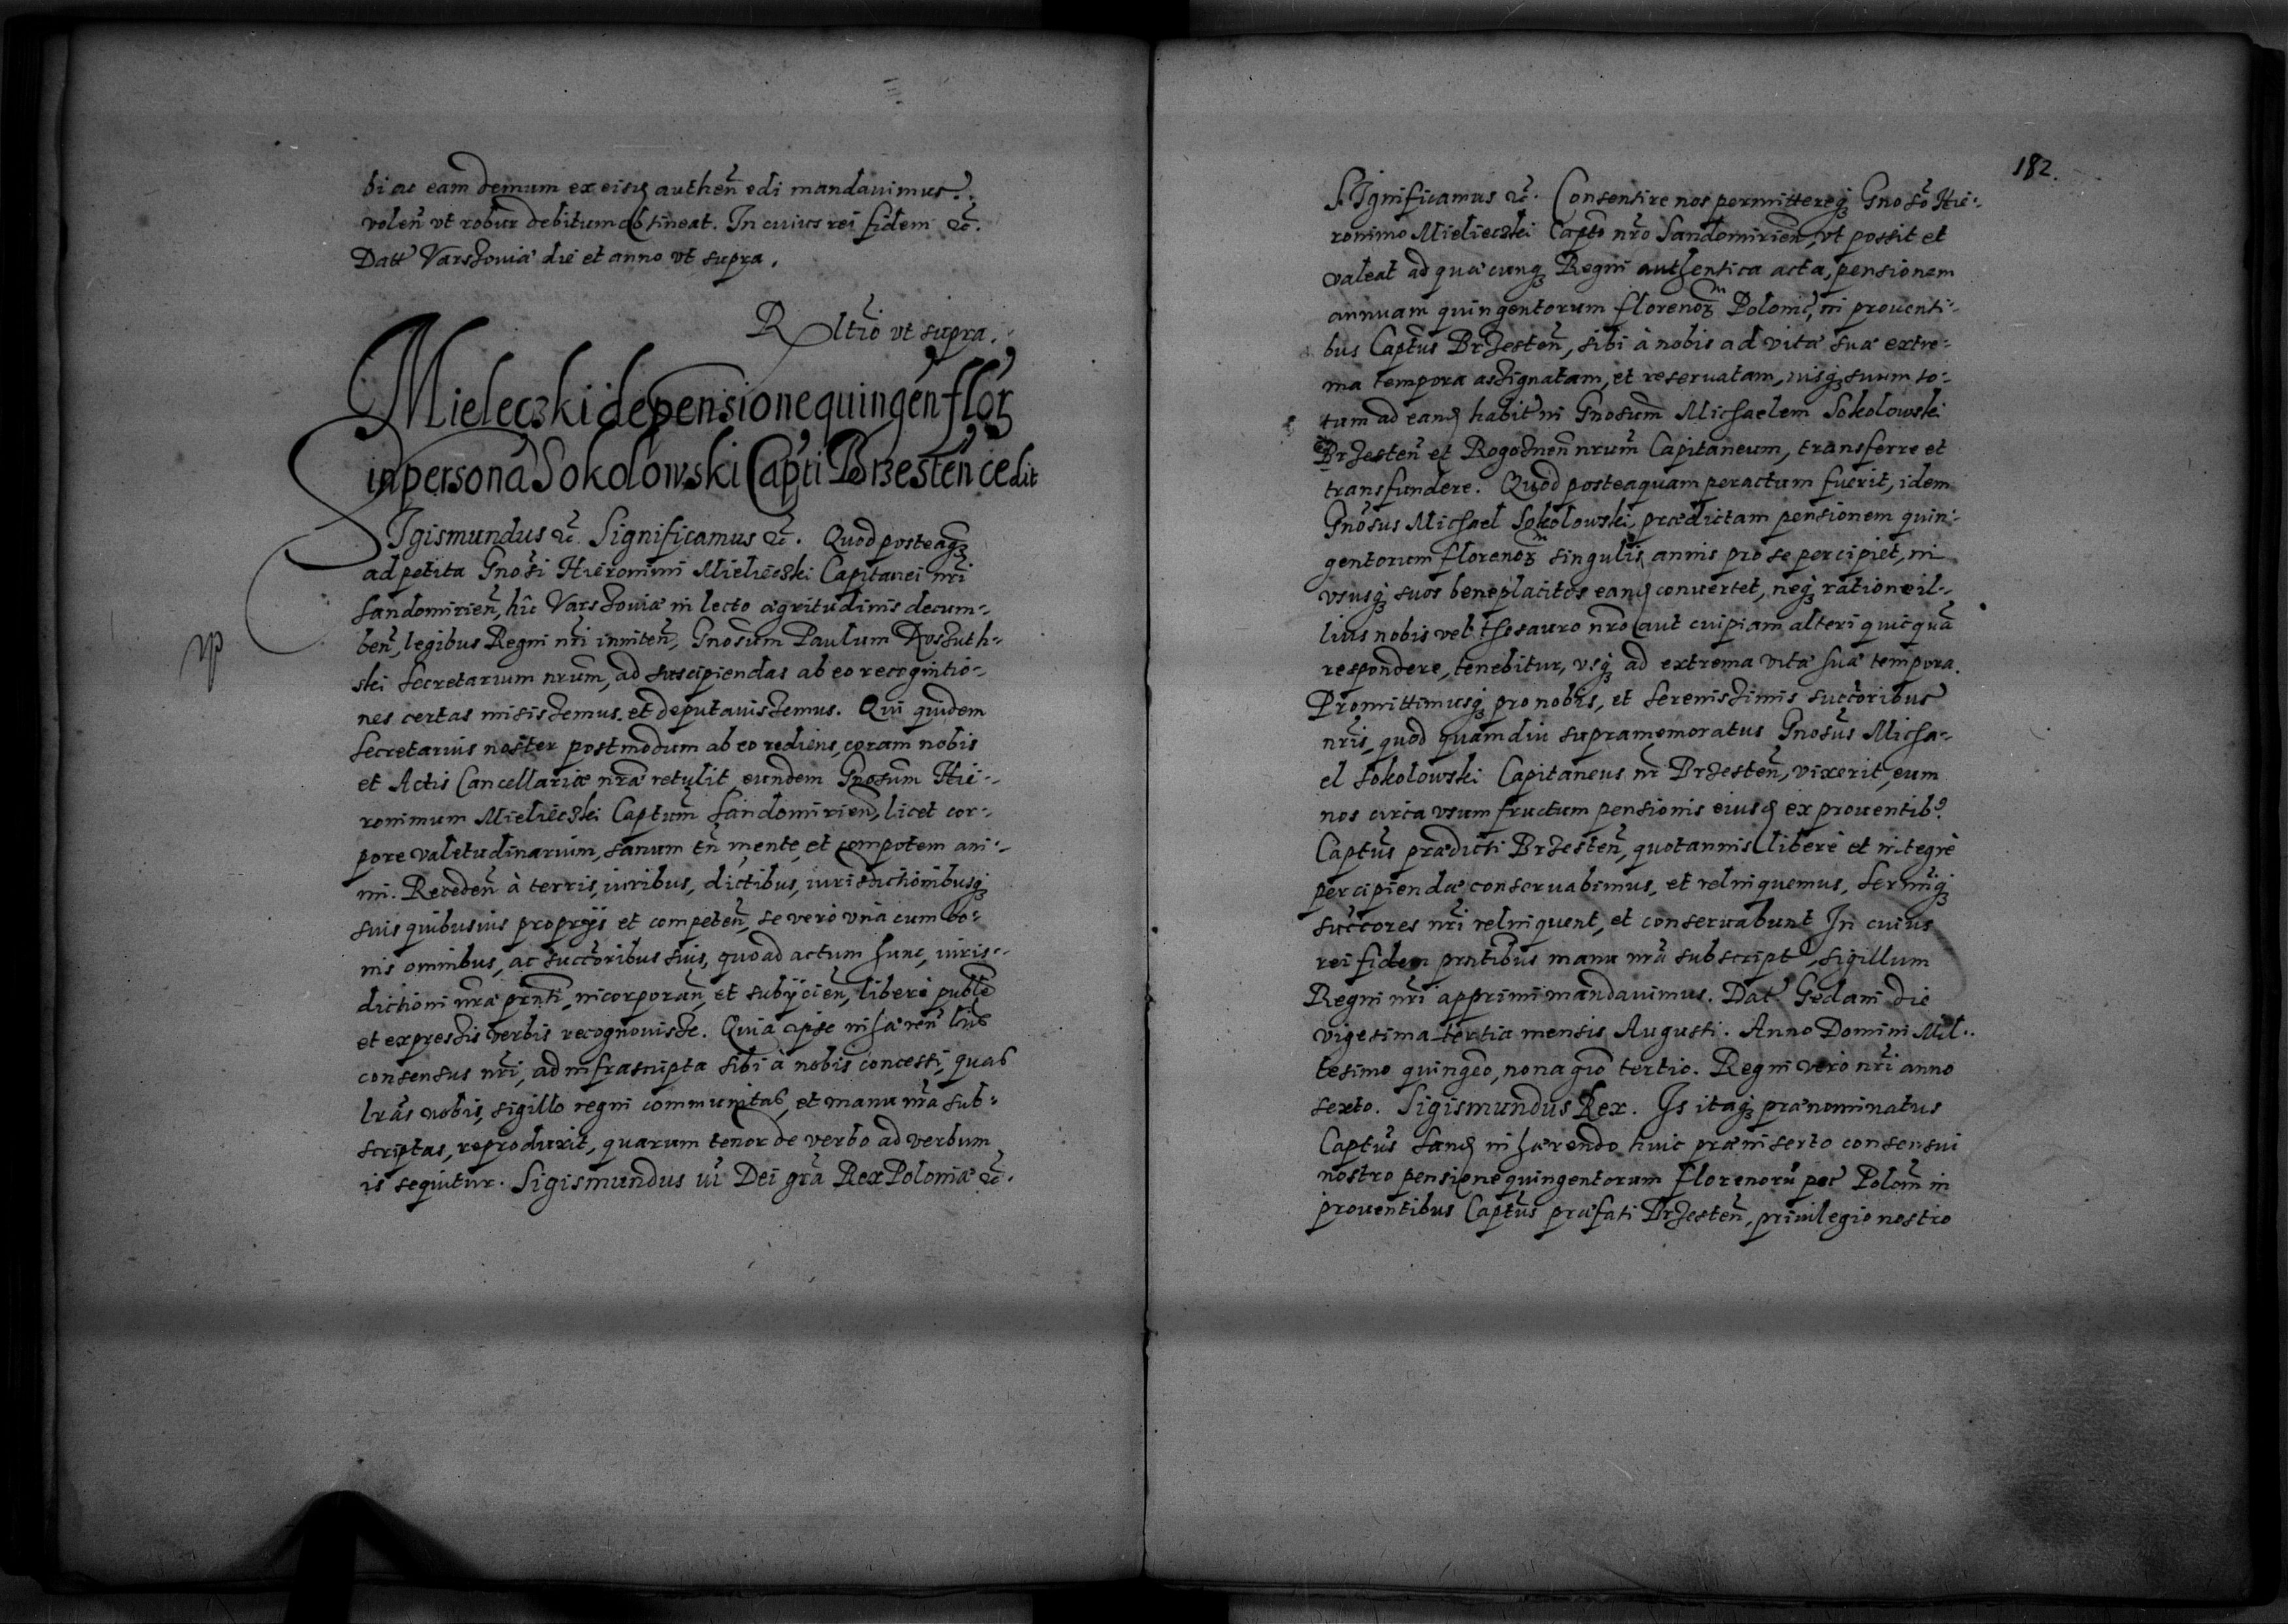 bi ac eam demum ex eisd authen̄ edi mandauimus.
volen̄ vt robur debitum obtineat. In cuius rei fidem &c̄.
Datt Varssouiæ die et anno vt supra.
Rltio vt supra.
Mieleczki de pensione quingen̄ flor̄
in persona Sokolowski Capti Brzesten̄ cedit
SIgismundus &c̄ Significamus &c̄. Quod posteaq̄
ad petita Gnosi Hieronimi Mielieczki Capitanei nr̄i
Sandomirien̄, hîc Varssouiæ in lecto ægritudinis decum-
ben̄, legibus Regni nr̄i inniten̄, Gnosum Paulum Kossuth-
ski Secretarium nrūm, ad suscipiendas ab eo recognitio-
nes certas misissemus et deputauissemus. Qui quidem
Secretarius noster postmodum ab eo rediens, coram nobis
et Actis Cancellariæ nr̄æ retulit, eundem Gnosum Hie-
ronimum Mielieczki Captum̄ Sandomirien̄, licet cor-
pore valetudinarium, sanum tn̄ mente, et compotem ani-
mi. Receden̄ à terris, iuribus, dictibus, iurisdictionibusq3
suis quibusuis proprijs et competen̄, se verò vnà cum bo-
nis omnibus, ac succoribus suis, quoad actum hunc, iuris-
dictioni nr̄æ prn̄ti, incorporan̄, et subijcien̄, liberè puble
et expressis verbis recognouisse. Quia ipse inhæren̄ lris
consensus nr̄i, ad infrascripta sibi à nobis concessi, quas
lrās nobis, sigillo regni communitas, et manu nr̄a sub-
scriptas, reproduxit, quarum tenor de verbo ad verbum
is sequitur. Sigismundus iii Dei grā Rex Poloniæ &c̄.
182.
SIgnificamus &c̄. Consentire nos permittereq3 Gnoso Hie-
ronimo Mielieczki Capto nr̄o Sandomirien̄, vt possit et
valeat ad quæcunq3 Regni authentica acta, pensionem
annuam quingentorum florenor̄ Polonic̄, in prouenti-
bus Captus Brzesten̄, sibi à nobis ad vitæ suæ extre-
ma tempora assignatam, et reseruatam, iusq3 suum to-
tum ad eand habit in Gnosum Michaelem Sokolowski
Brzesten̄ et Rogoznen̄ nrum̄ Capitaneum, transferre et
transfundere. Quod posteaquam peractum fuerit, idem
Gnosus Michael Sokolowski, prædictam pensionem quin-
gentorum florenor̄ singulis annis pro se percipiet, in
vsusq3 suos beneplacitos eand conuertet, neq3 ratione il-
lius nobis vel thesauro nr̄o aut cuipiam alteri quicquā
respondere, tenebitur, vsq3 ad extrema vitæ suæ tempora.
Promittimusq3 pro nobis, et Serenissimis succoribus
nr̄is, quod quamdiu supramemoratus Gnosus Micha-
el Sokolowski Capitaneus nr̄ Brzesten̄, vixerit, eum
nos circa vsum fructum pensionis eiusd ex prouentib9
Captus prædicti Brzesten̄, quotannis liberè et integrè
percipiendæ conseruabimus, et relinquemus, Sermiq3
succores nr̄i relinquent, et conseruabunt In cuius
rei fidem prn̄tibus manu nr̄a subscript, sigillum
Regni nr̄i apprimi mandauimus. Dat Gedani die
vigesima tertia mensis Augusti. Anno Domini Mil-
lesimo quingeō, nonagiō tertio. Regni verò nr̄i anno
sexto. Sigismundus Rex. Is itaq3 prænominatus
Captus Sand inhærendo huic præinserto consensui
nostro pensione quingentorum florenorū pec Polon̄ in
prouentibus Captus præfati Brzesten̄, priuilegio nostro